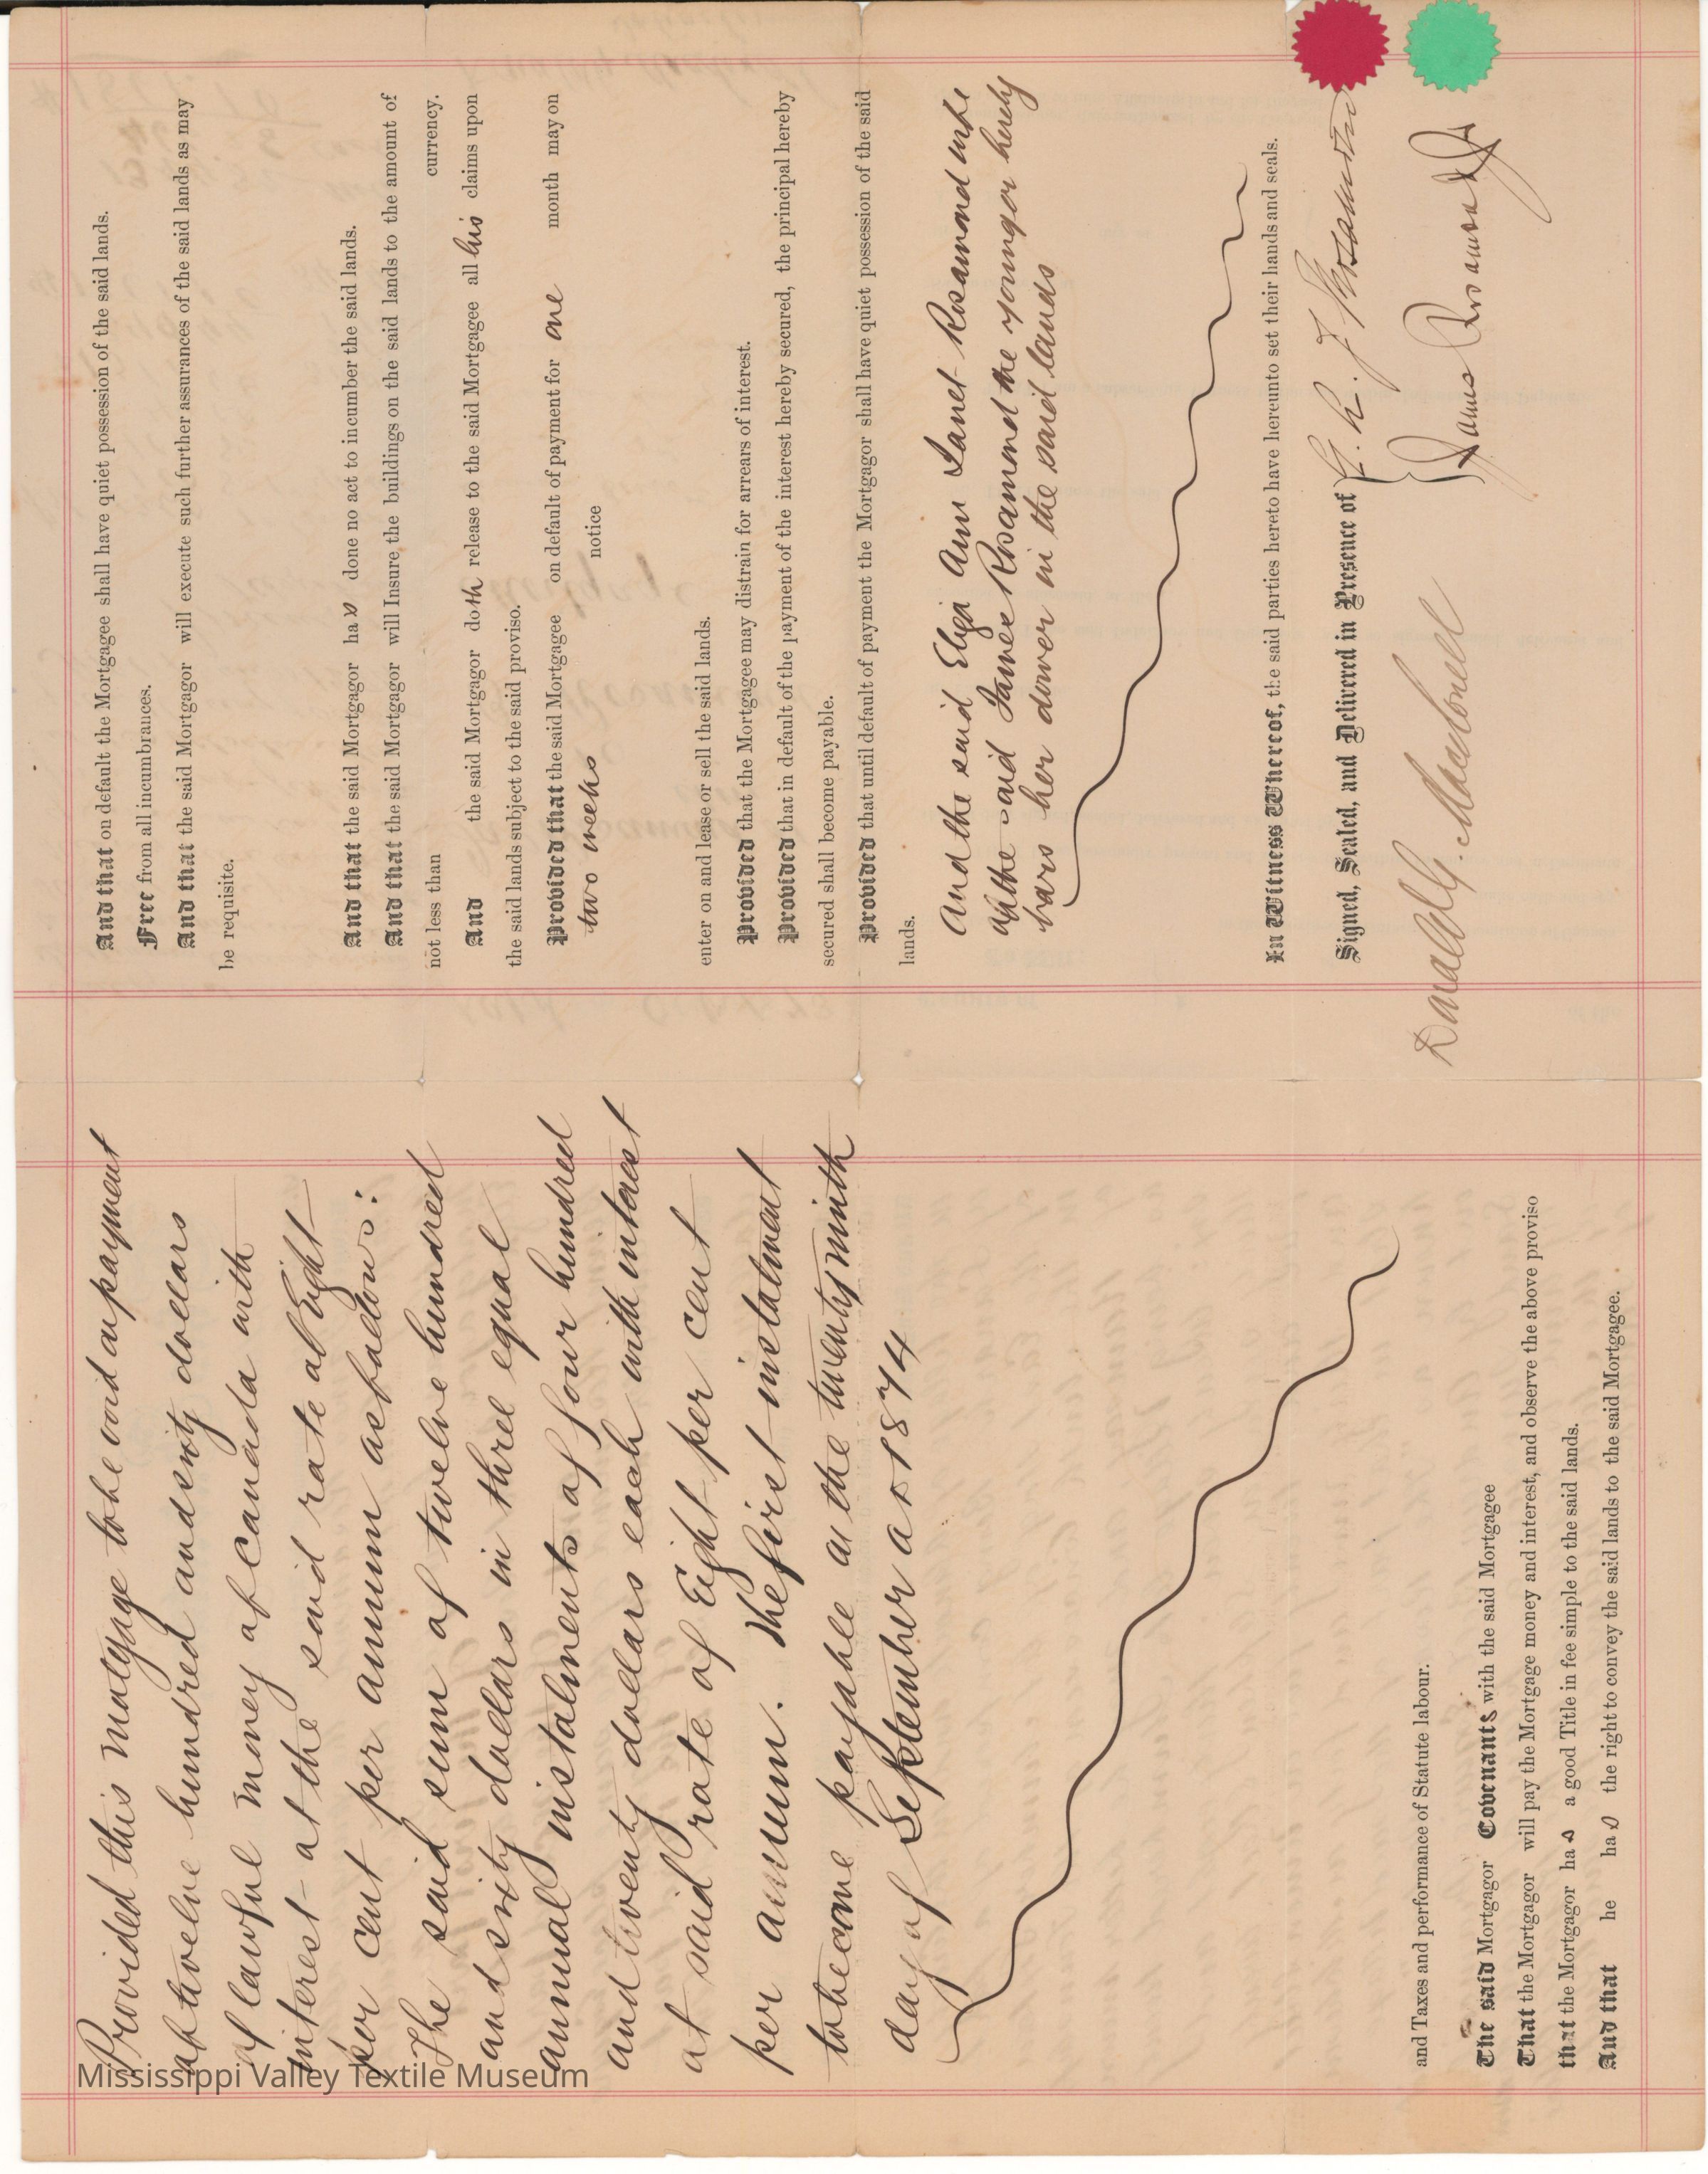 Provided this mortgage to be void on payment
of twelve hundred and sixty dollars
of lawful money of Canada with
interest at the said rate of Eight
per cent per annum as follows:
The said sum of twelve hundred
and sixty dollars in three equal
annual instalments of four hundred
and twenty dollars each with interest
at said rate of Eight per cent
per annum. The first instalment
to become payable on the twenty ninth
day of September AD 1874
and Taxes and performance of Statute labour.
The said Mortgagor Covenants with the said Mortgagee
That the Mortgagor will pay the Mortgage money and interest, and observe the above proviso
that the Mortgagor has a good Title in fee simple to the said lands.
And that he has the right to convey the said lands to the said Mortgagee.
And that on default the Mortgagee shall have quiet possession of the said lands.
Free from all incumbrances.
And that the said Mortgagor will execute such further assurances of the said lands as may
be requisite.
And that the said Mortgagor has done no act to incumber the said lands.
And that the said Mortgagor will Insure the buildings on the said lands to the amount of
not less than currency.
And the said Mortgagor doth release to the said Mortgagee all his claims upon
the said lands subject to the said proviso.
Provided that the said Mortgagee on default of payment for one month may on
two weeks notice
enter on and lease or sell the said lands.
Provided that the Mortgagee may distrain for arrears of interest.
Provided that in default of the payment of the interest hereby secured, the principal hereby
secured shall become payable.
Provided that until default of payment the Mortgagor shall have quiet possession of the said
lands.
And the said Eliza Ann Janet Rosamond wife
of the said James Rosamond the younger hereby
bars her dower in the said lands
In Witness Whereof, the said parties hereto have hereunto set their hands and seals.
Signed, Sealed, and Delivered in Presence of
Rosamond
James Rosamond Jr
Macdonell
Mississippi Valley Textile Museum